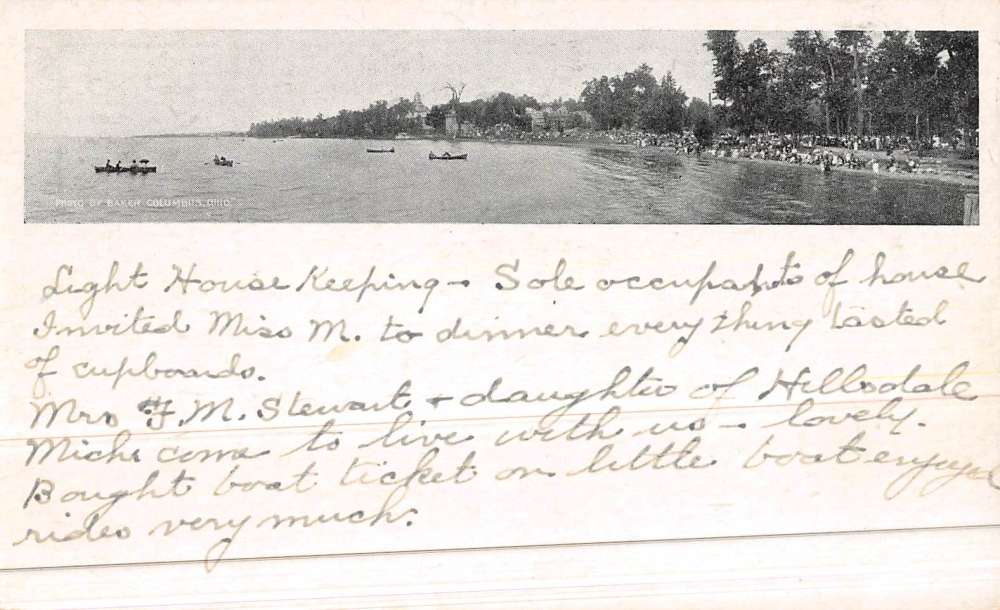 PHOTO BY BAKER COLUMBUS, OHIO
Light House Keeping - Sole occupants of house
Invited Miss M. to dinner everything tasted
of cupboards.
Mrs F. M. Stewart + daughter of Hillsdale
Mich come to live with us - lovely.
Bought boat ticket on little boat enjoyed
rides very much.